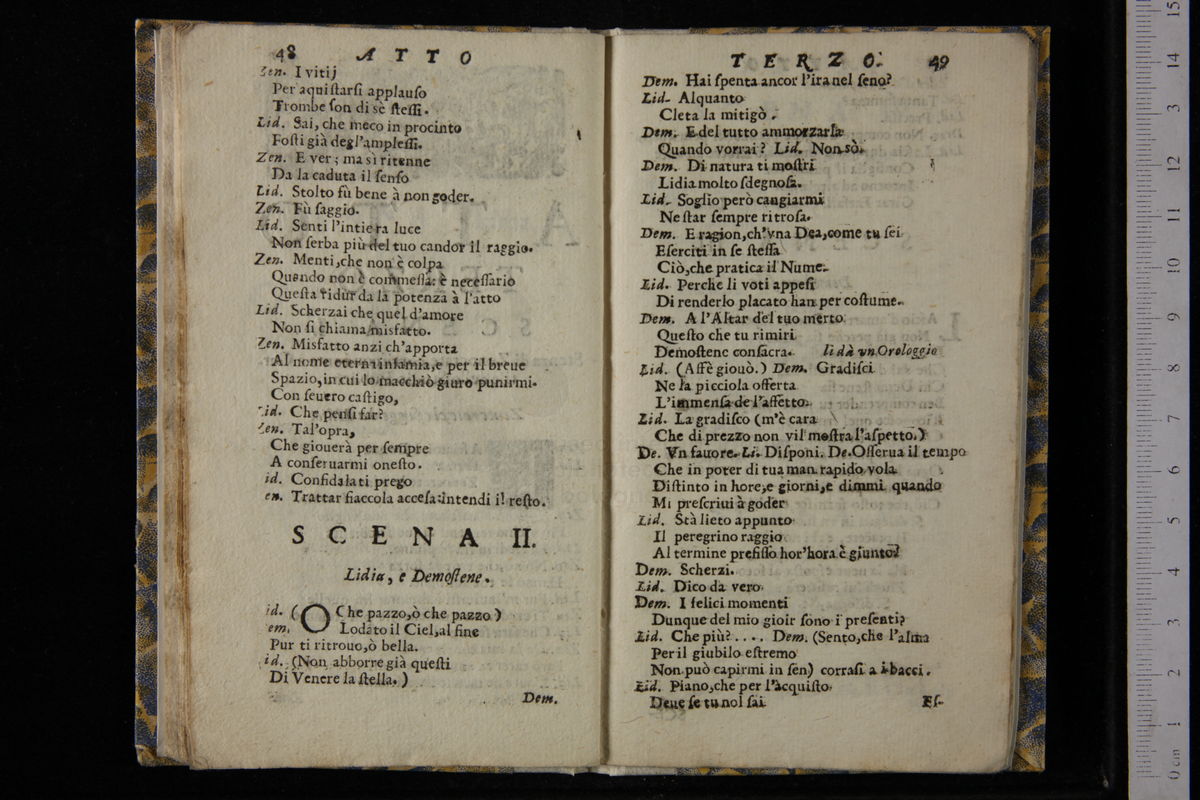 48 ATTO
Zen. I vitij
Per aquiſtarſi applauſo
Trombe ſon di sè ſteſſi.
Lid. Sai, che meco in procinto
Foſti già degl'ampleſſi.
Zen. E ver; ma sì ritenne
Da la caduta il ſenſo
Lid. Stolto fù bene à non goder.
Zen. Fù ſaggio.
Lid. Senti l'intiera luce
Non ſerba più del tuo candor il raggio.
Zen. Menti, che non è colpa
Quando non è commeſſa: è neceſſario
Queſta ridur da la potenza à l'atto
Lid. Scherzai che quel d'amore
Non ſi chiama misfatto.
Zen. Misfatto anzi ch'apporta
Al nome eterna infamia, e per il breue
Spazio, in cui lo macchiò giuro punirmi.
Con ſeuero caſtigo,
Lid. Che penſi far?
Zen. Tal'opra,
Che giouerà per ſempre
A conſeruarmi oneſto.
id. Confidala ti prego
en. Trattar fiaccola acceſa: intendi il reſto.
SCENA II.
Lidia, e Demoſtene.
id. (O Che pazzo, ò che pazzo)
em. Lodato il Ciel, al fine
Pur ti ritrouo, ò bella.
id. (Non abborre già queſti
Di Venere la ſtella.)
Dem.
TERZO. 49
Dem. Hai ſpenta ancor l'ira nel ſeno?
Lid. Alquanto
Cleta la mitigò.
Dem. E del tutto ammorzarla
Quando vorrai? Lid. Non sò.
Dem. Di natura ti moſtri
Lidia molto ſdegnoſa.
Lid. Soglio però cangiarmi
Ne ſtar ſempre ritroſa.
Dem. E ragion, ch'vna Dea, come tu ſei
Eſerciti in ſe ſteſſa
Ciò, che pratica il Nume.
Lid. Perche li voti appeſi
Di renderlo placato han per coſtume.
Dem. A l'Altar del tuo merto
Queſto che tu rimiri
Demoſtene conſacra. li dà vn Orologgio
Lid. (Affè giouò.) Dem. Gradiſci
Ne la picciola offerta
L'immenſa de l'affetto.
Lid. La gradiſco (m'è cara
Che di prezzo non vil moſtra l'aſpetto.)
De. Vn fauore. Li. Diſponi. De. Oſſerua il tempo
Che in poter di tua man rapido vola
Diſtinto in hore, e giorni, e dimmi quando
Mi preſcriui à goder
Lid. Stà lieto appunto
Il peregrino raggio
Al termine prefiſſo hor'hora è giunto?
Dem. Scherzi.
Lid. Dico da vero
Dem. I felici momenti
Dunque del mio gioir ſono i preſenti?
Lid. Che più? .... Dem. (Sento, che l'alma
Per il giubilo eſtremo
Non può capirmi in ſen) corraſi a i bacci.
Lid. Piano, che per l'acquiſto
Deue ſe tu nol ſai
Eſ-